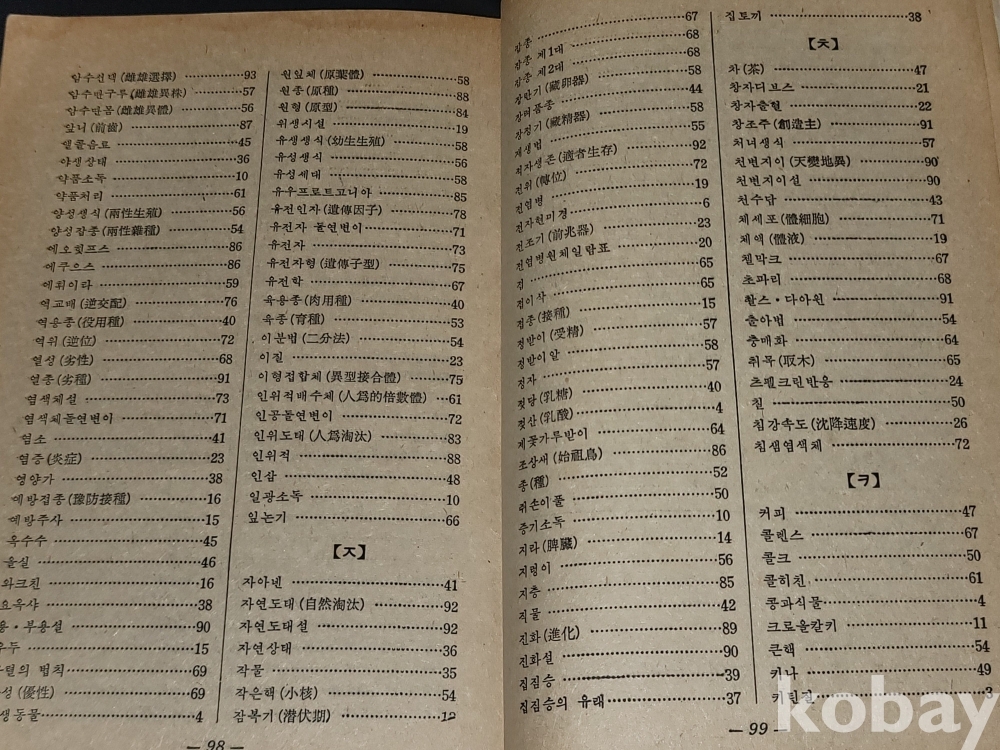 암수선택(雌雄選擇) 93
암수딴구루(雌雄異株) 57
암수딴몸(雌雄異體) 56
앞니(前齒) 87
앨콜음료 45
야생상태 36
약품소독 10
약품처리 61
양성생식(兩性生殖) 56
양성잡종(兩性雜種) 54
에오힢프스 86
에쿠으스 86
에퀴이라 59
역교배(逆交配) 76
역용종(役用種) 40
역위(逆位) 72
열성(劣性) 68
열종(劣種) 91
염색체설 73
염색체돌연변이 71
염소 41
염증(炎症) 23
영양가 38
예방접종(豫防接種) 16
예방주사 15
옥수수 45
올실 46
와크친 16
요옥샤 38
용・부용설 90
우두 15
멘델의 법칙 69
성(優性) 69
생동물 4
원잎체(原葉體) 58
원종(原種) 88
원형(原型) 84
위생시설 19
유생생식(幼生生殖) 58
유성생식 56
유성세대 58
유우프로트고니아 85
유전인자(遺傳因子) 78
유전자 돌연변이 71
유전자 73
유전자형(遺傳子型) 75
유전학 67
육용종(肉用種) 40
육종(育種) 53
이분법(二分法) 54
이질 23
이형접합체(異型接合體) 75
인위적배수체(人爲的倍數體) 61
인공돌연변이 72
인위도태(人爲淘汰) 83
인위적 88
인삼 48
일광소독 10
잎눈기 66
【ㅈ】
자아넨 41
자연도태(自然淘汰) 92
자연도태설 92
자연상태 36
작물 35
작은핵(小核) 54
잠복기(潜伏期) 12
— 98 —
잡종 67
잡종 제1대 68
잡종 제2대 68
장란기(藏卵器) 58
장려품종 44
장정기(藏精器) 58
재생법 55
적자생존(適者生存) 92
전위(轉位) 72
전염병 19
전자현미경 6
전조기(前兆器) 23
전염병원체일람표 20
점 65
접이삭 65
접종(接種) 15
정받이(受精) 57
정받이알 58
정자 57
젖당(乳糖) 40
젖산(乳酸) 4
제꽃가루받이 64
조상새(始祖鳥) 86
종(種) 52
쥐손이풀 50
증기소독 10
지라(脾臟) 14
지렁이 56
지층 85
직물 42
진화(進化) 89
진화설 90
집짐승 39
집짐승의 유래 37
집토끼 38
【ㅊ】
차(茶) 47
창자디브스 21
창자출혈 22
창조주(創造主) 91
처녀생식 57
천변지이(天變地異) 90
천변지이설 90
천수답 43
체세포(體細胞) 71
체액(體液) 19
첼막크 67
초파리 68
촬스・다아윈 91
출아법 54
충매화 64
취목(取木) 65
츠펠크린반응 24
칡 50
침강속도(沈降速度) 26
침샘염색체 72
【ㅋ】
커피 47
콜렌스 67
콜크 50
콜히친 61
콩과식물 4
크로올칼키 11
큰핵 54
키나 49
키틴질 3
— 99 —
kobay